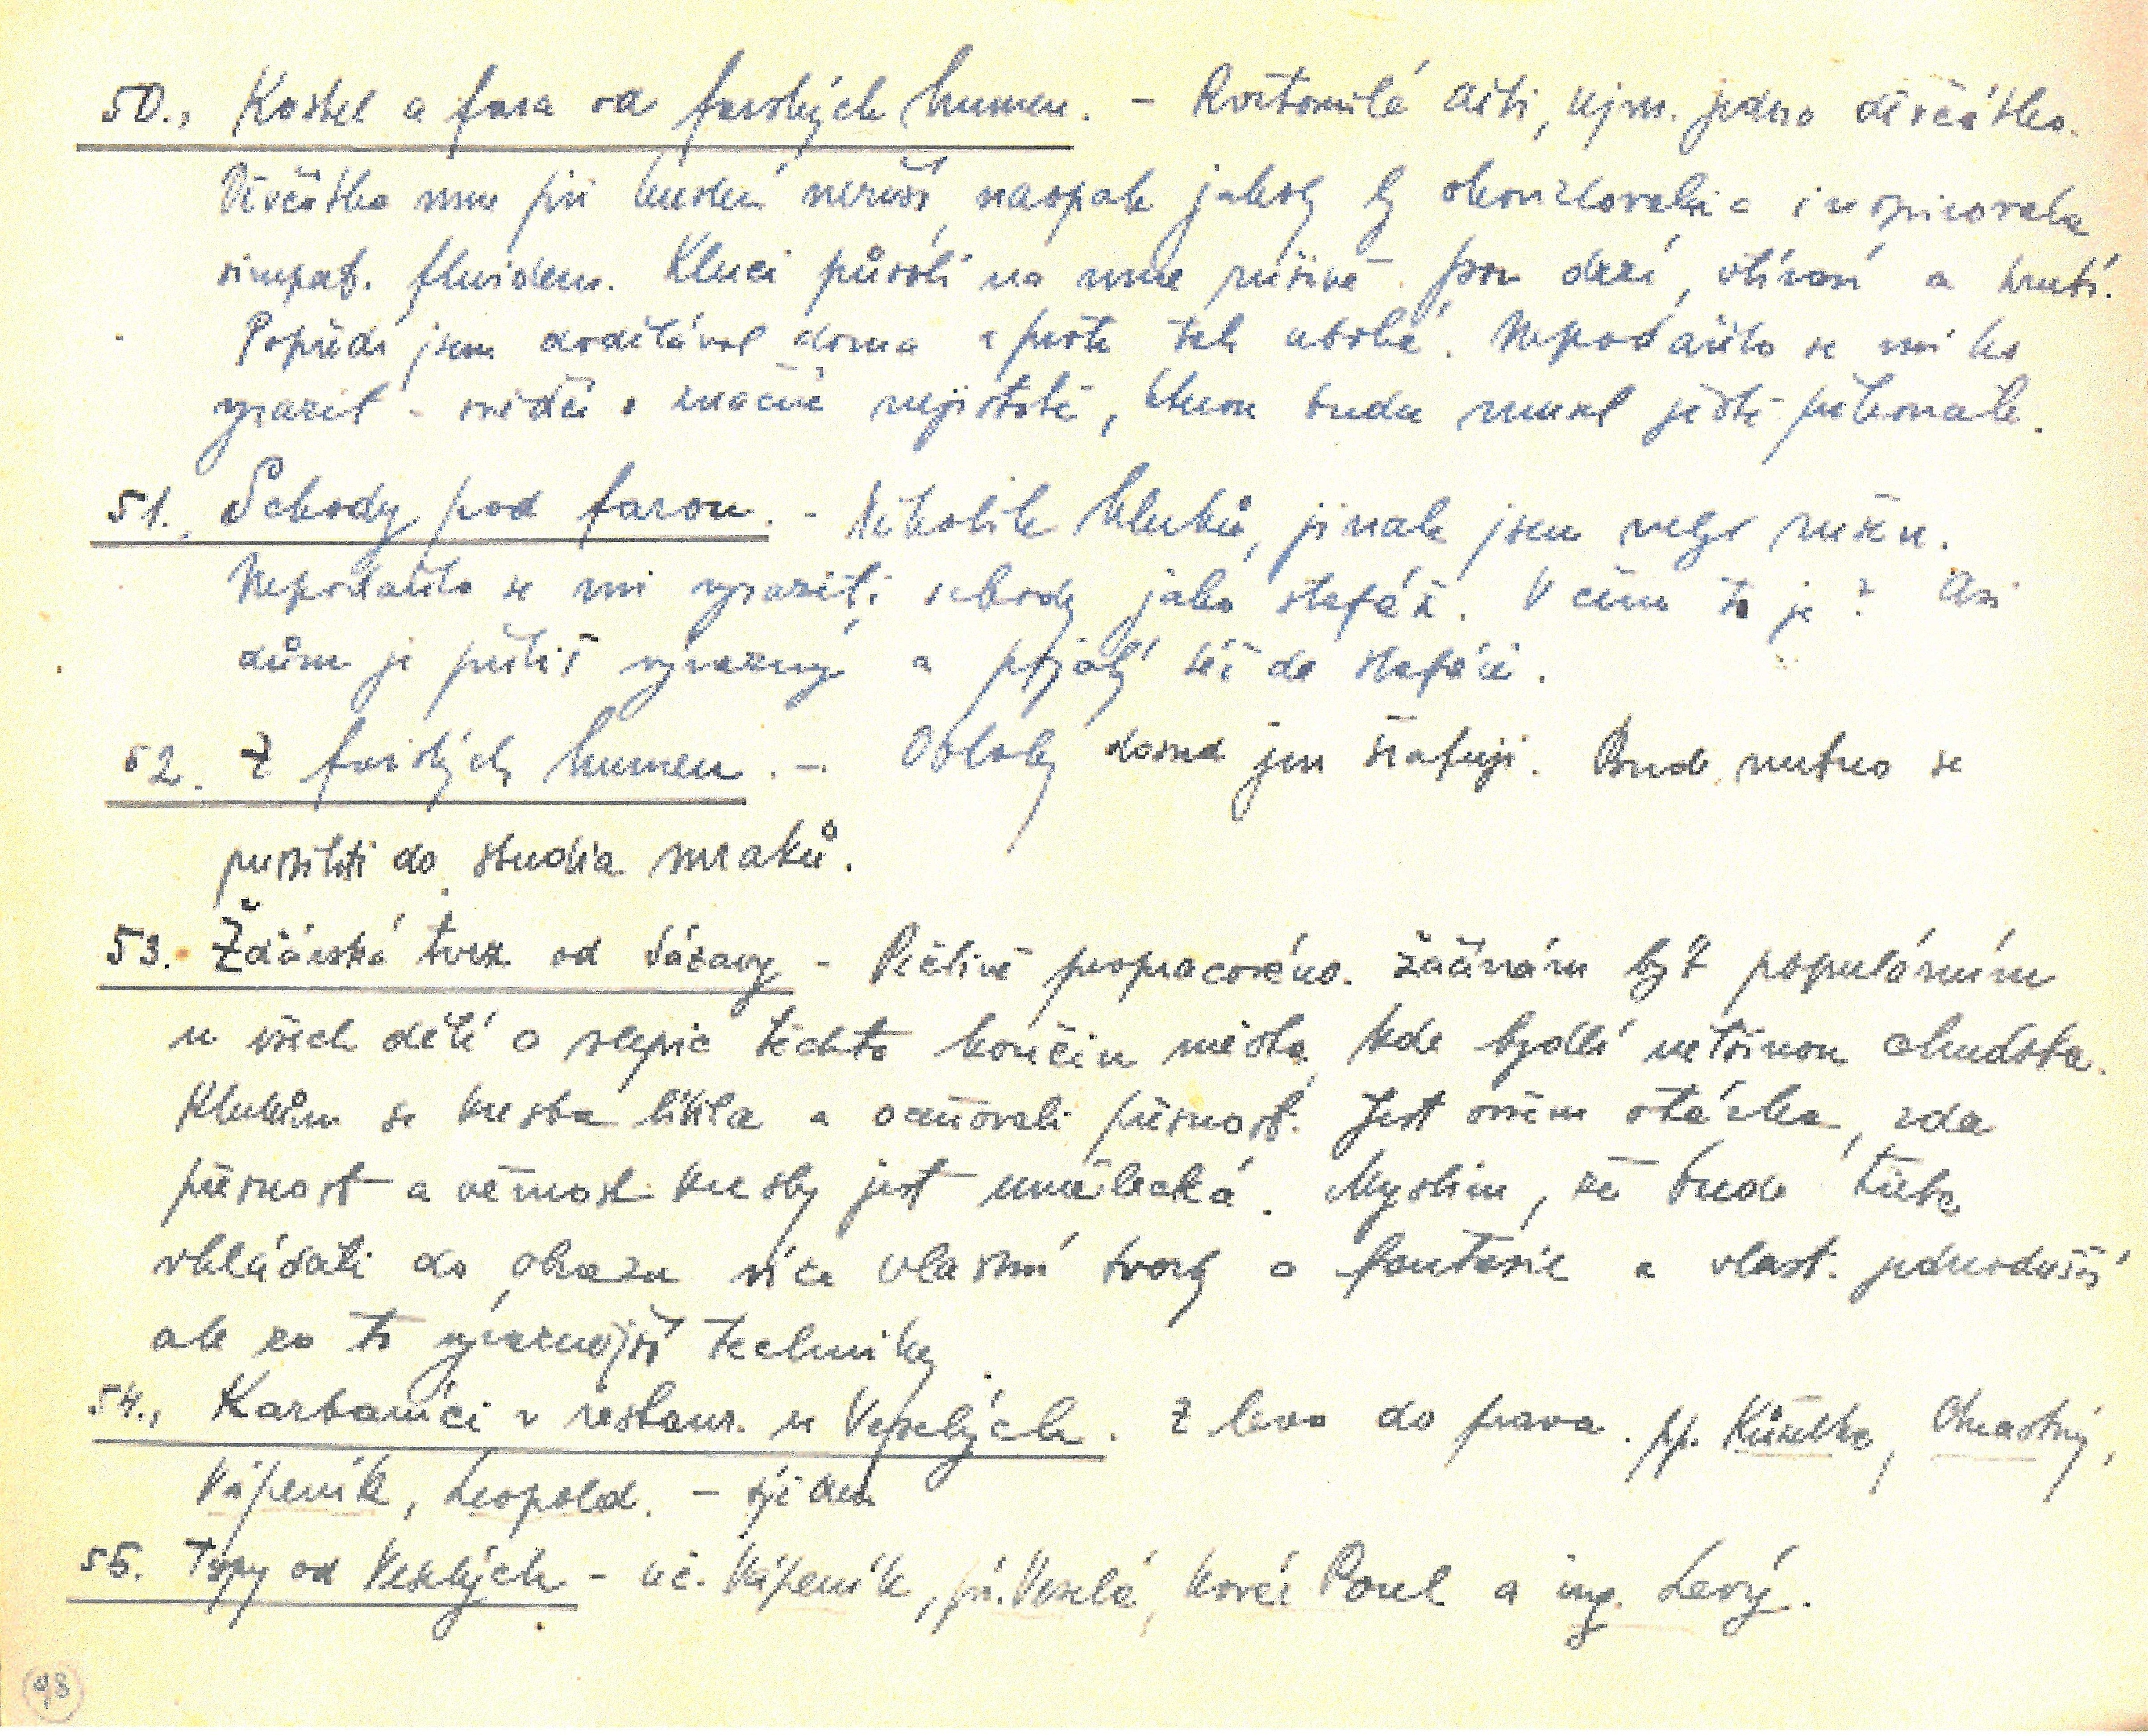 50., Kostel a fara od farských humen. - Roztomilé děti, zejm. jedno děvčátko.
Děvčátka mne při kreslení neruší, naopak jakoby by okouzlovala a inspirovala
simpat. fluidem. Kluci působí na mne rušivě. Jsou drzí, otírací a krutí.
Popředí jsem dodělával doma a proto tak ubohé. Nepodařilo se mi ho
vyrazit - svědčí o značné nejistotě, kterou budu muset ještě překonat.
51., Schody pod farou. - Několik kluků, jinak jsem nebyl rušen.
Nepodařilo se mi vyraziti schody jako stafáž. V čem to je? Asi
dům je příliš výrazný a pojatý též do stafáže.
52. Z farských humen. - Oblohy dosud jen šrafuji. Bude nutno se
pustiti do studia mraků.
53. Žďárská tvrz od Sázavy - Pečlivě propracováno. Začínám být populárním
u všech dětí a slepic těchto končin města, kde bydlí většinou chudoba.
Klukům se kresba líbila a oceňovali přesnost. Jest ovšem otázka, zda
přesnost a věrnost kresby jest umělecká. Myslím, že bude třeba
vkládati do obrazu více vlastní tvorby a fantasie a vlast. jednodušší
ale za to výraznější techniky.
54., Karbaníci v restaur. u Veselých. Z leva do prava. pp. Kůželka, Chrastný,
Vápeník, Leopold. - týden
55. Typy od Veselých - uč. Vápeník, pí. Veselá, kovář Pavel a ing. Levý.
98